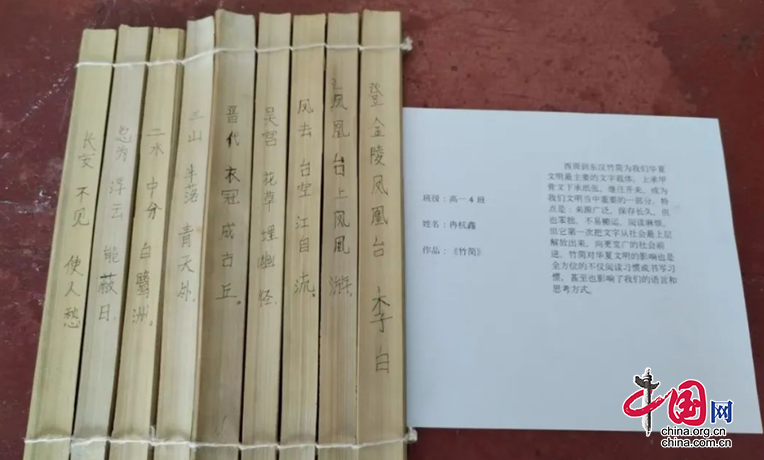 登金陵凤凰台 李白
凤凰台上凤凰游.
凤去台空江自流.
吴宫花草埋幽径.
晋代衣冠成古丘。
三山半落青天外.
二水中分白鹭洲.
总为浮云能蔽日.
长安不见使人愁
班级:高一4班
姓名:冉杭鑫
作品:《竹简》
西周到东汉竹简为我们华夏
文明最主要的文字载体,上承甲
骨文下承纸张,继往开来,成为
我们文明当中重要的一部分,特
点是:来源广泛,保存长久,但
也笨拙,不易搬运,阅读麻烦,
但它第一次把文字从社会最上层
解放出来,向更宽广的社会前
进。《竹简对华夏文明的影响也是
全方位的不仅阅读习惯或书写习
惯,甚至也影响了我们的语言和
思考方式。
中国网
china.org.cn
china.com.cn